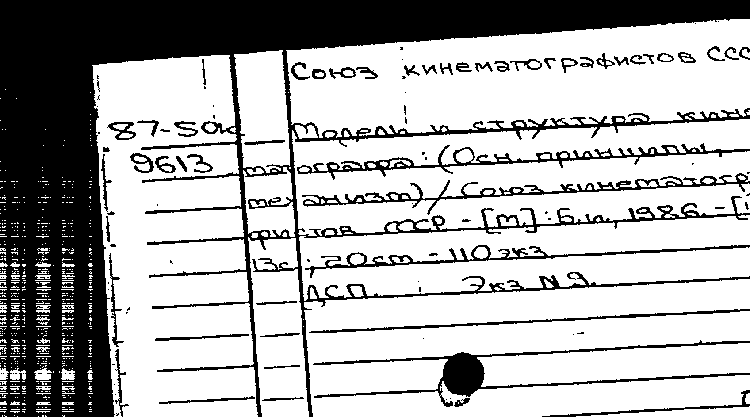 Союз кинематографистов ССС
87-50к Модели и структура кине
9613 матографа: (Осн. принципы,
механизм) / Союз кинематогр
фистов СССР - [М.]: Б.и., 1986. - [
13с ; 20см - 110 экз
ДСП. Экз N 9.